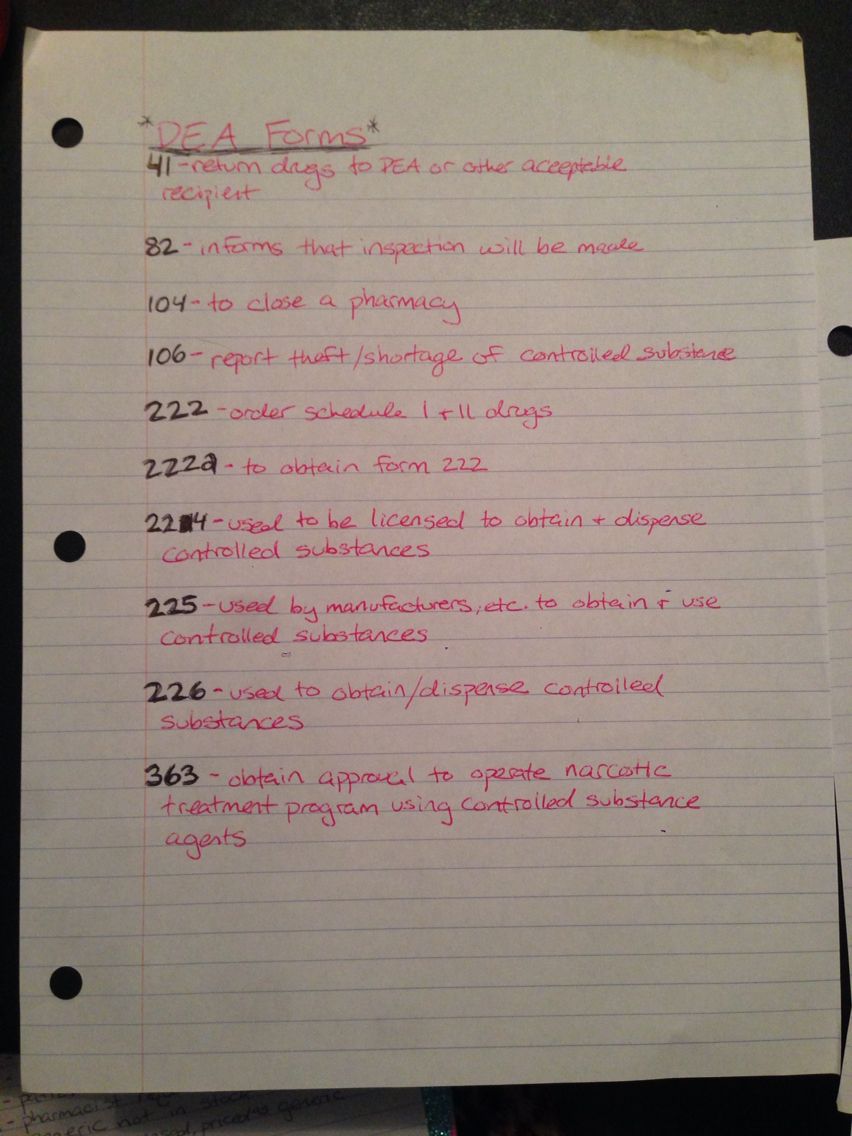 *DEA Forms*
41-return drugs to DEA or other acceptable
recipient
82-informs that inspection will be made
104-to close a pharmacy
106-report theft/shortage of controlled substance
222-order schedule I + II drugs
222a-to obtain form 222
224-used to be licensed to obtain + dispense
controlled substances
225-used by manufacturers, etc. to obtain + use
controlled substances
226-used to obtain/dispense controlled
substances
363-obtain approval to operate narcotic
treatment program using controlled substance
agents
- pharmacist
generic not in stock
priced as generic